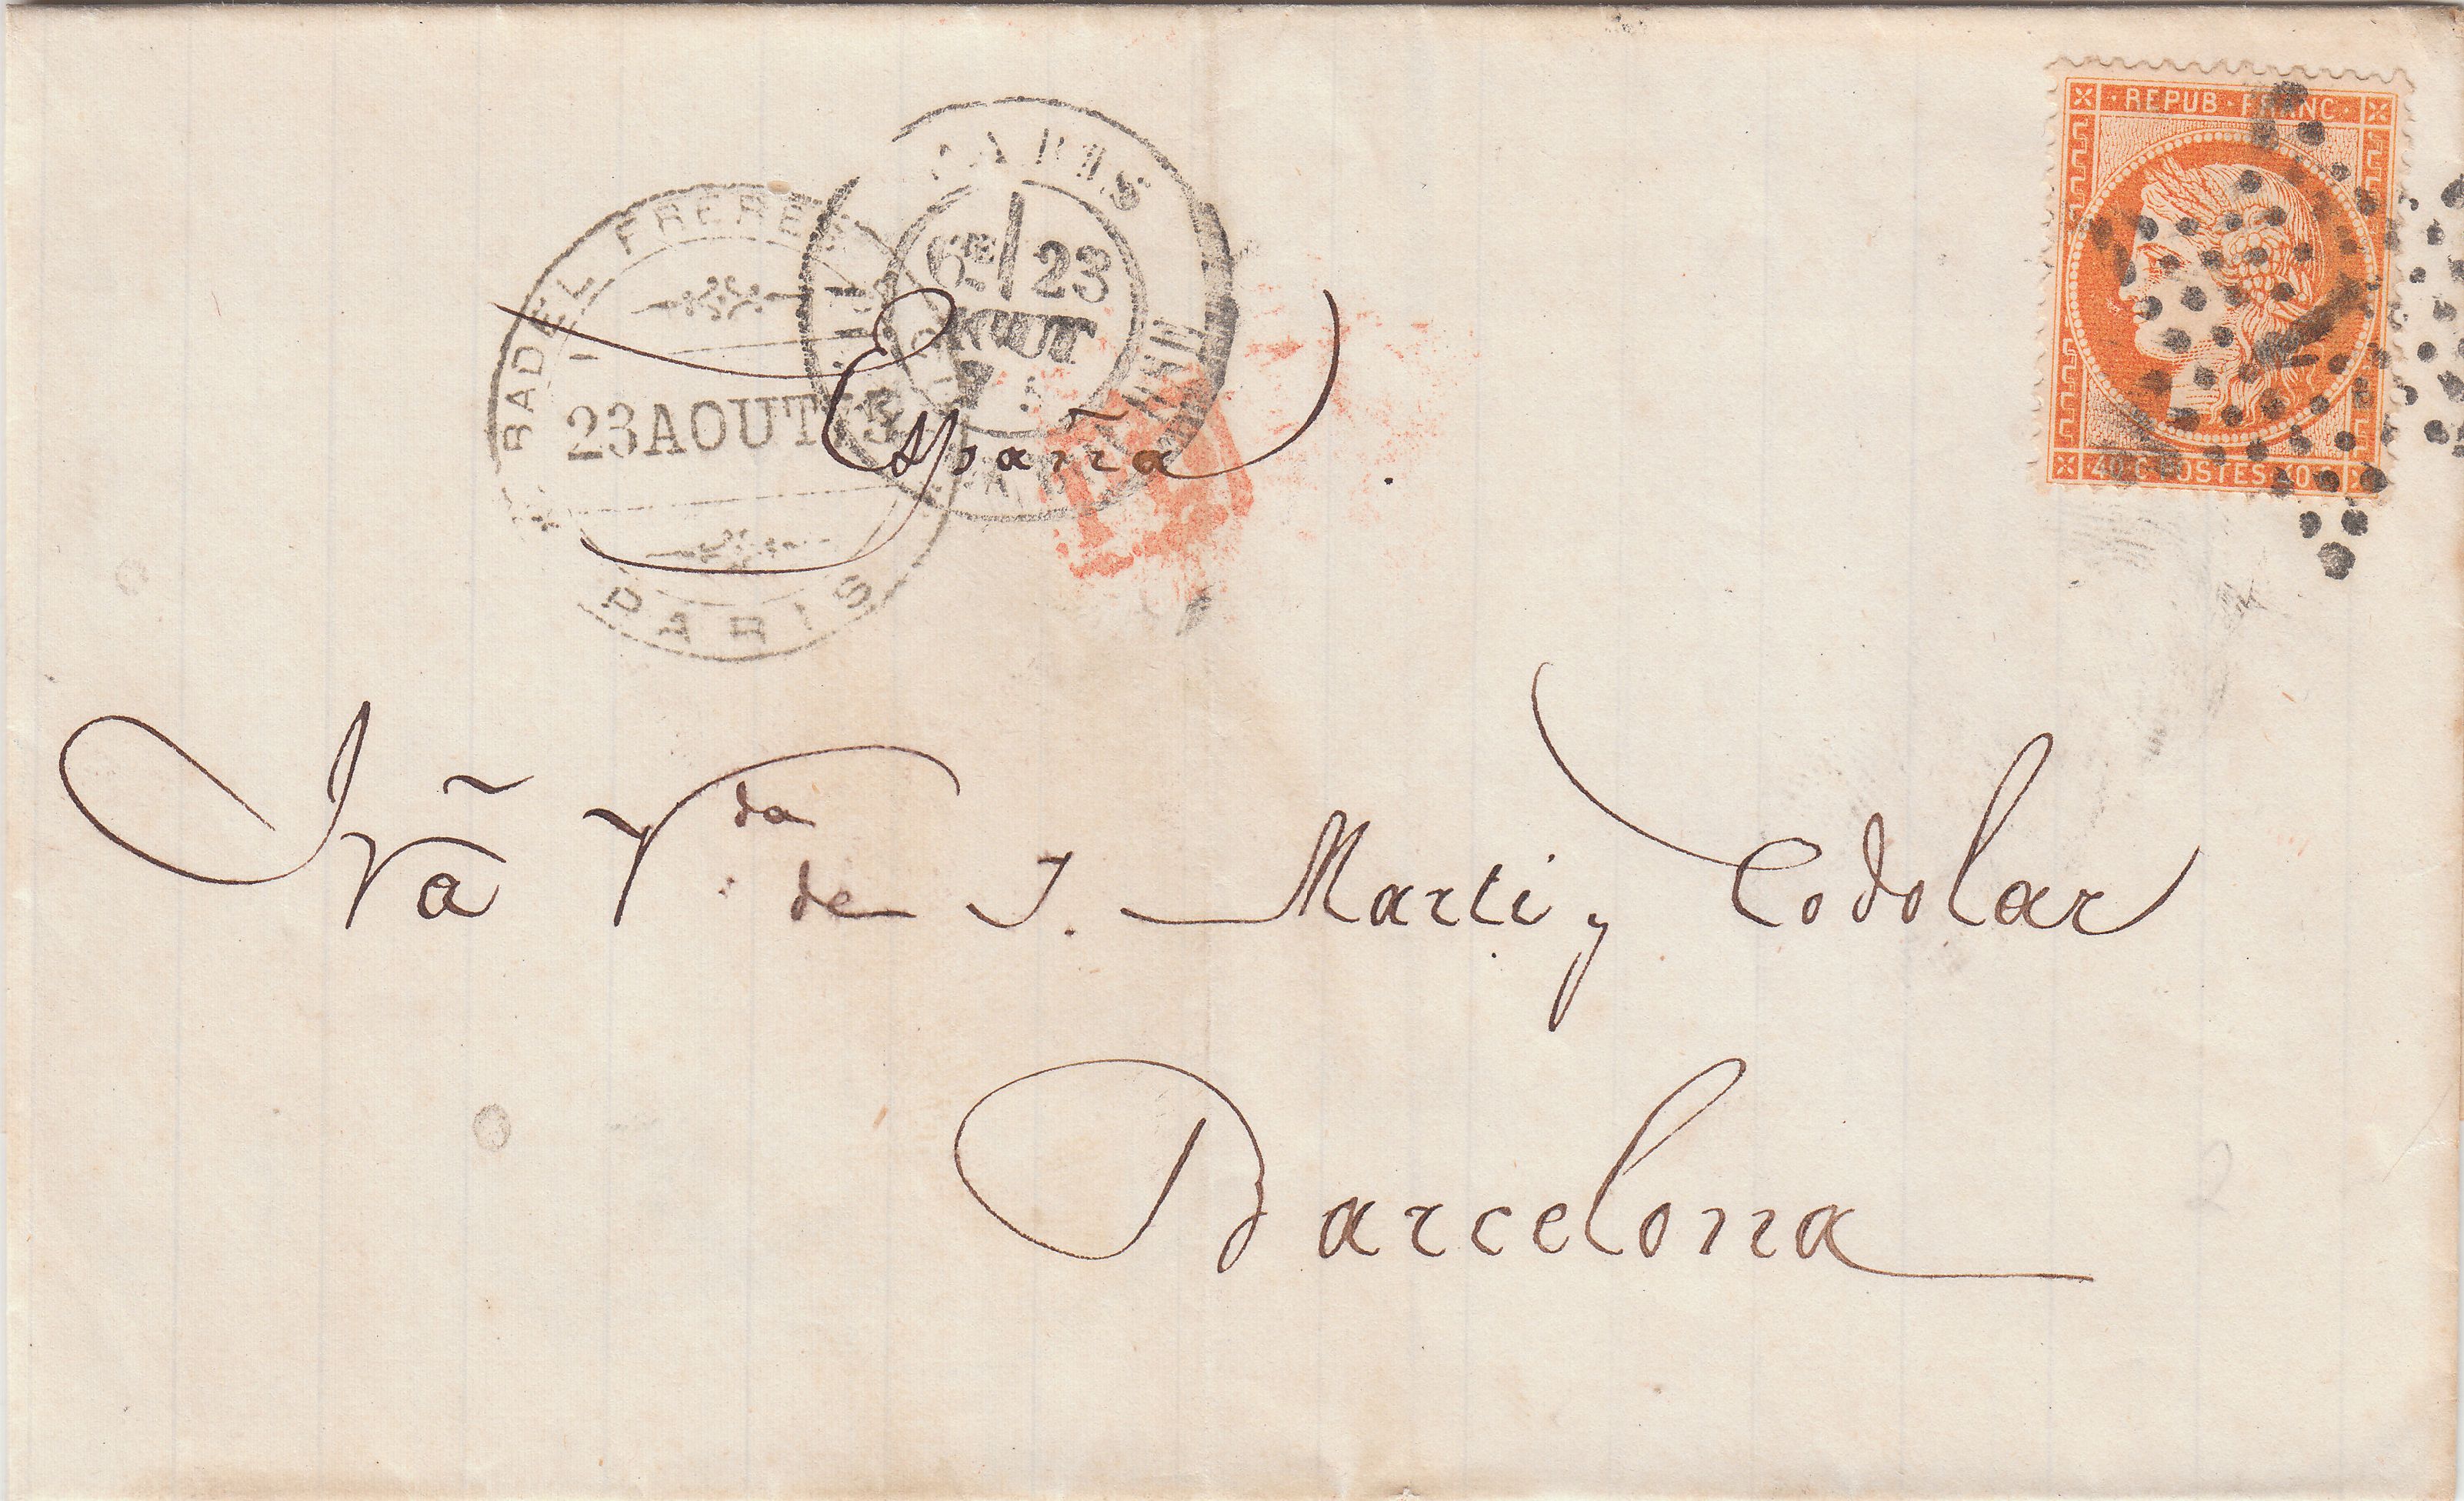 REPUB·FRANC·
40·C·POSTES·40·C
1
PARIS
6E/23
AOUT
BADEL FRERES
23 AOUT 75
PARIS
España
Srã Vda de J. Marti y Codolar
Barcelona
2